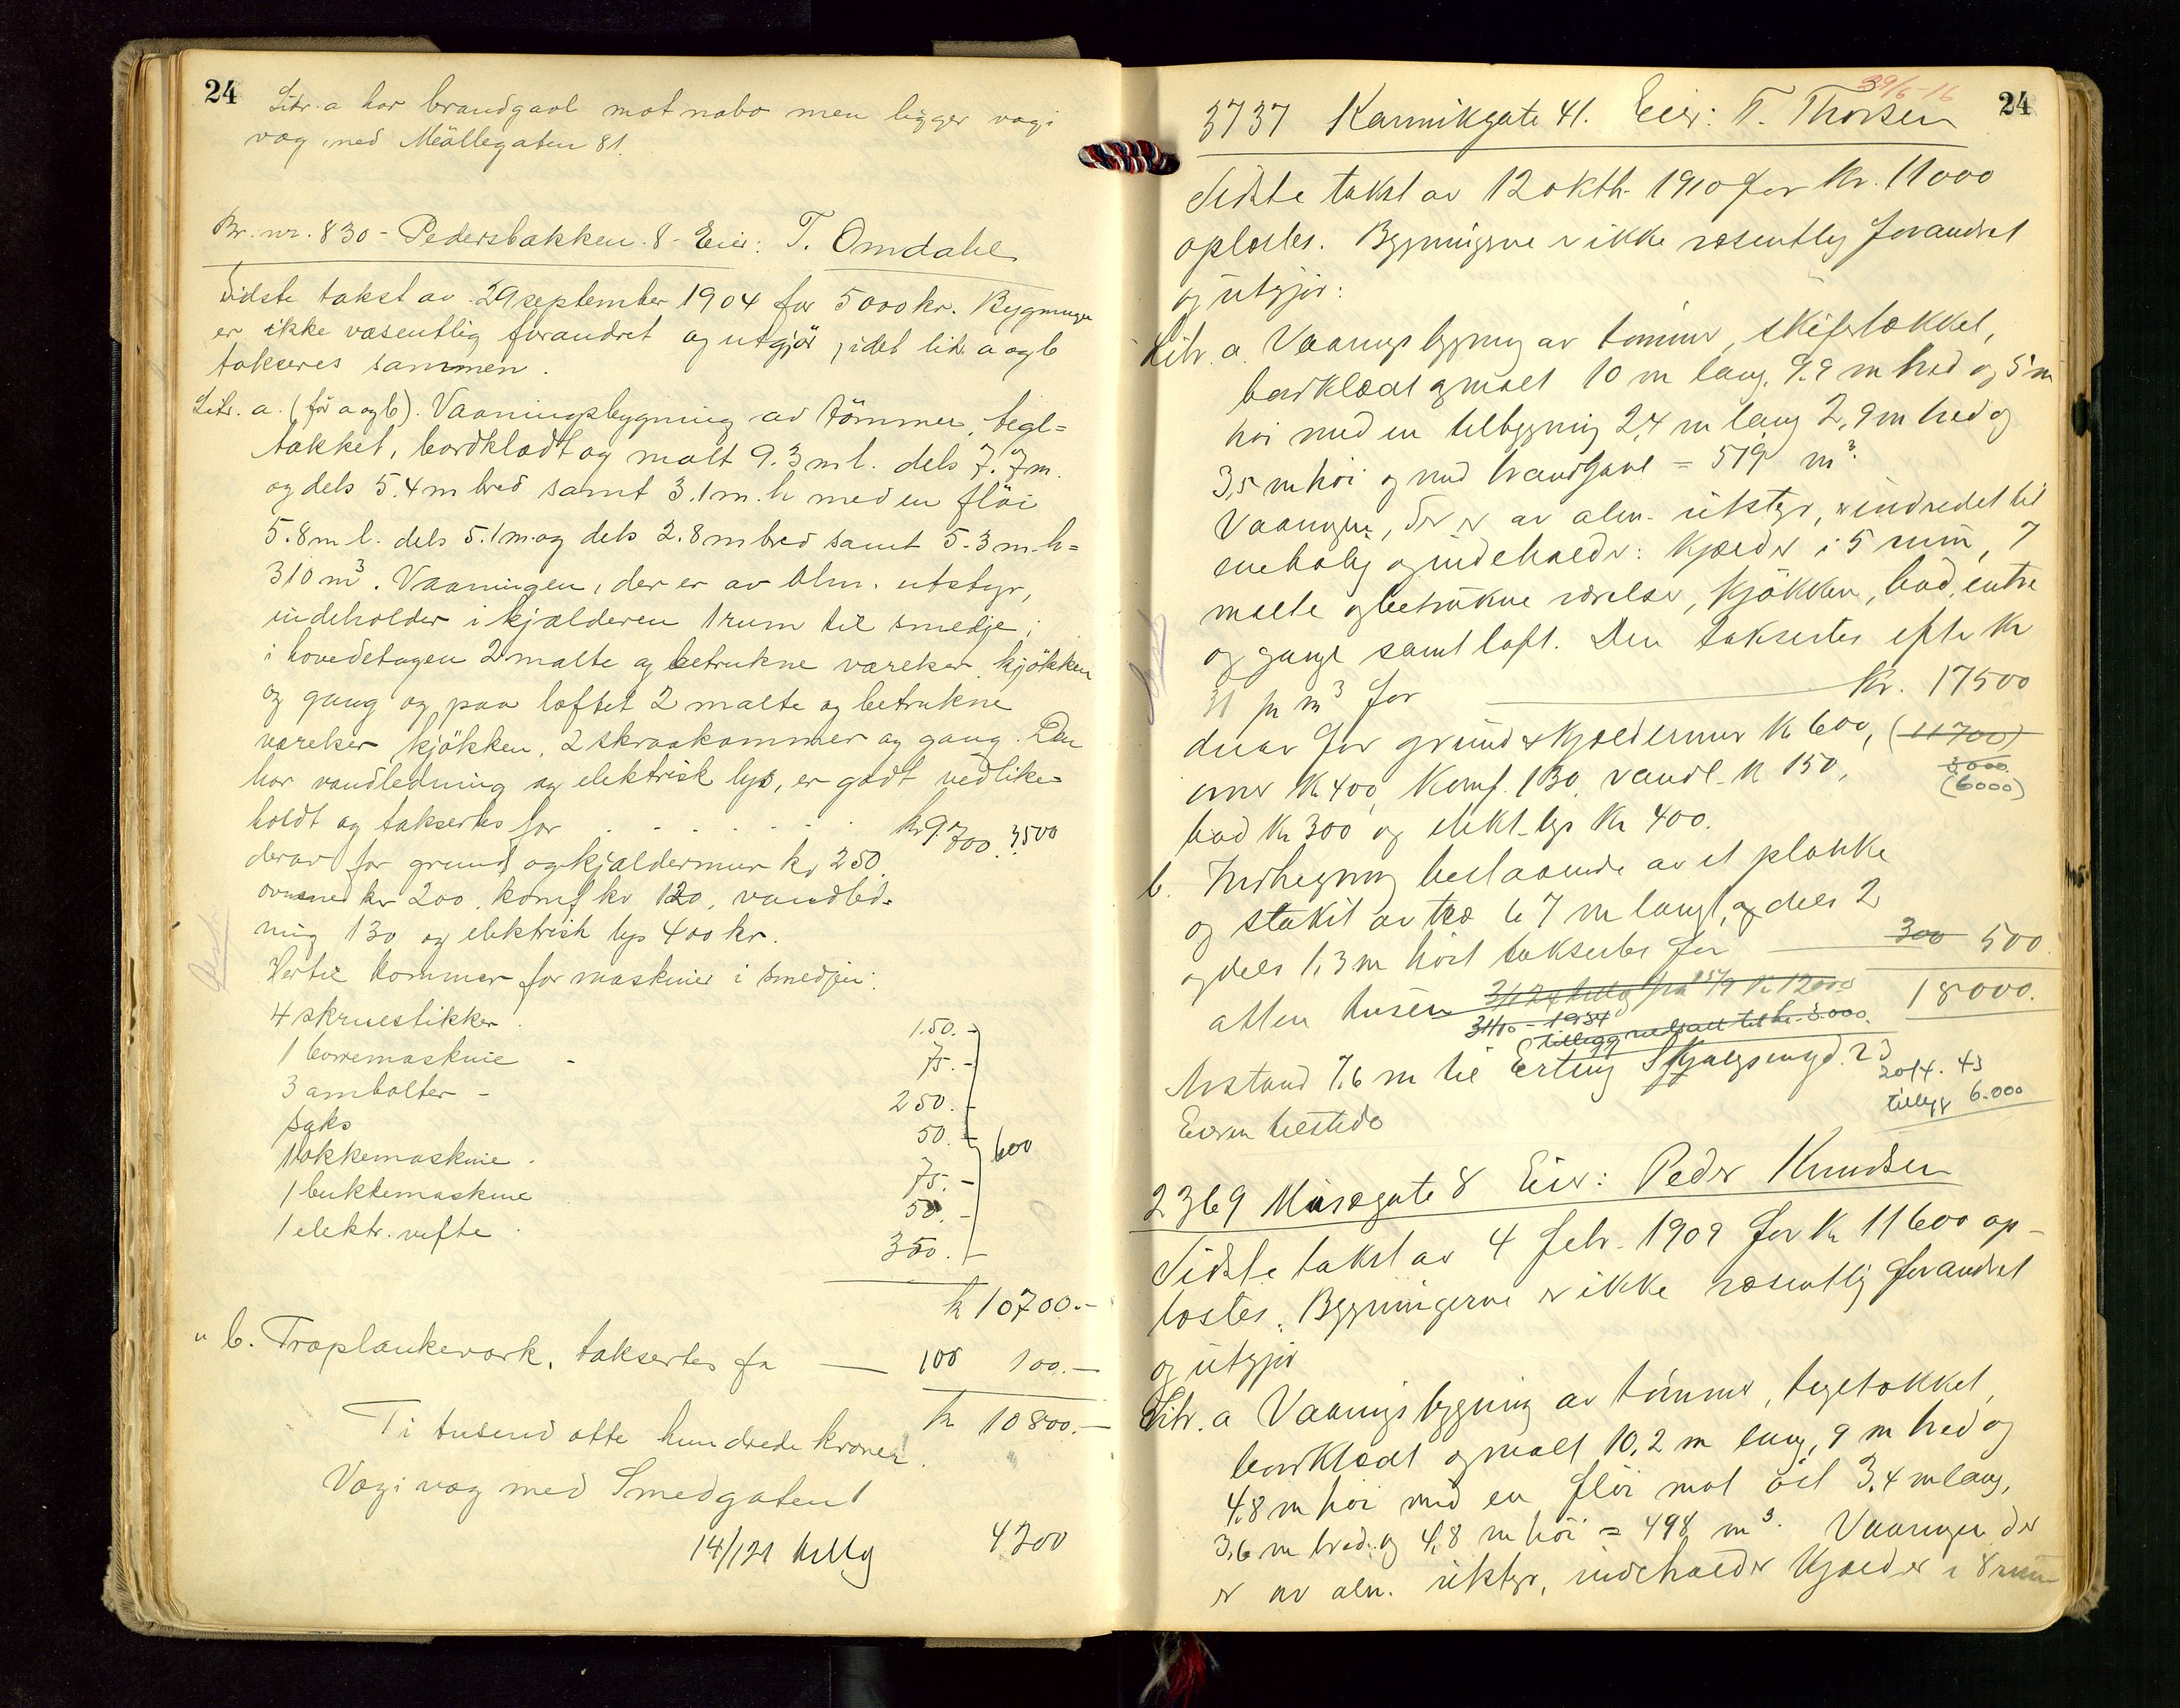 24
Litr. a har brandgavl mot nabo men ligger væg i
væg med Möllegaten 81.
Br. nr. 830 - Pedersbakken 8 - Eier: T. Omdahl
Sidste takst av 29 september 1904 for 5000 kr. Bygningen
er ikke væsentlig forandret og utgjör, idet litr. a og b
takseres sammen.
Litr. a. (för a og b). Vaaningsbygning av tömmer, tegl-
tækket, bordklædt og malt 9.3 m l. dels 7.7 m.
og dels 5.4 m bred samt 3.1 m. h med en flöi
5.8 m l. dels 5.1 m. og dels 2.8 m bred samt 5.3 m. h =
310 m³. Vaaningen, der er av alm. utstyr,
indeholder i kjælderen 1 rum til smedje;
i hovedetagen 2 malte og betrukne værelser, kjökken
og gang og paa loftet 2 malte og betrukne
værelser, kjökken, 2 skraakammer og gang. Den
har vandledning og elektrisk lys, er godt vedlike-
holdt og taksertes for . . . . . . kr 9700. 3500
derav for grund og kjældermur kr 250.
ovner kr 200, komf kr 120, vandled-
ning 130 og elektrisk lys 400 kr.
Hertil kommer for maskiner i smedjen:
4 skruestikker . 150. -
1 borremaskine - 75. -
3 ambolter - 250. -
saks 50. -
1 lokkemaskine . 75. -
1 bukkemaskine 50. -
1 elektr. vifte . 350. -
600
kr 10700.-
" b. Træplankeværk, taksertes for — 100 100.—
kr 10800.—
Ti tusend otte hundrede kroner.
Væg i væg med Smedgaten 1
14/121 tillæg 4200
24
29/6-16
3737 Kannikgate 41. Eier: T. Thorsen
Sidste takst av 12 oktb. 1910 for Kr. 11000
oplæstes. Bygningerne er ikke væsentlig forandret
og utgjör:
Litr. a. Vaaningsbygning av tömmer, skifertækket,
bordklædt og malt 10 m lang, 9.9 m bred og 5 m
höi med en tilbygning 2,4 m lang 2,9 m bred og
3,5 m höi og med brandgavl = 519 m³.
Vaaningen, der er av alm. utstyr, er indredet til
enebolig og indeholder: Kjælder i 5 rum, 7
malte og betrukne værelser, kjökken, bad, entre
og gange samt loft. Den taksertes efter Kr
31 pr m³ for — Kr. 17500
derav for grund & kjældermur Kr 600, (11700)
3000
ovner Kr 400, Komf. 130, vandl. Kr 150, (6000)
bad Kr 300 og elekt. lys Kr 400.
b. Indhegning bestaaende av et plankke
og stakit av træ 67 m langt, og dels 2
og dels 1,3 m höit taksertes for — 300 500.
18000.
atten tusen
31/10 - 1934
tillegg nedsatt til kr. 3.000.
Avstand 7,6 m til Erling Skjalgsøngt. 23
20/4. 43
tillegg 6.000
Eieren tilstede
2369 Musegate 8 Eier: Peder Knudsen
Sidste takst av 4 febr. 1909 for Kr 11600 op-
læstes. Bygningerne er ikke væsentlig forandret
og utgjör
Litr. a Vaaningsbygning av tömmer, tegltækket,
bordklædt og malt 10,2 m lang, 9 m bred og
4,8 m höi med en flöi mot öst 3,4 m lang,
3,6 m bred og 4,8 m höi = 498 m³. Vaaningen der
er av alm. utstyr, indeholder Kjælder i 8 rum